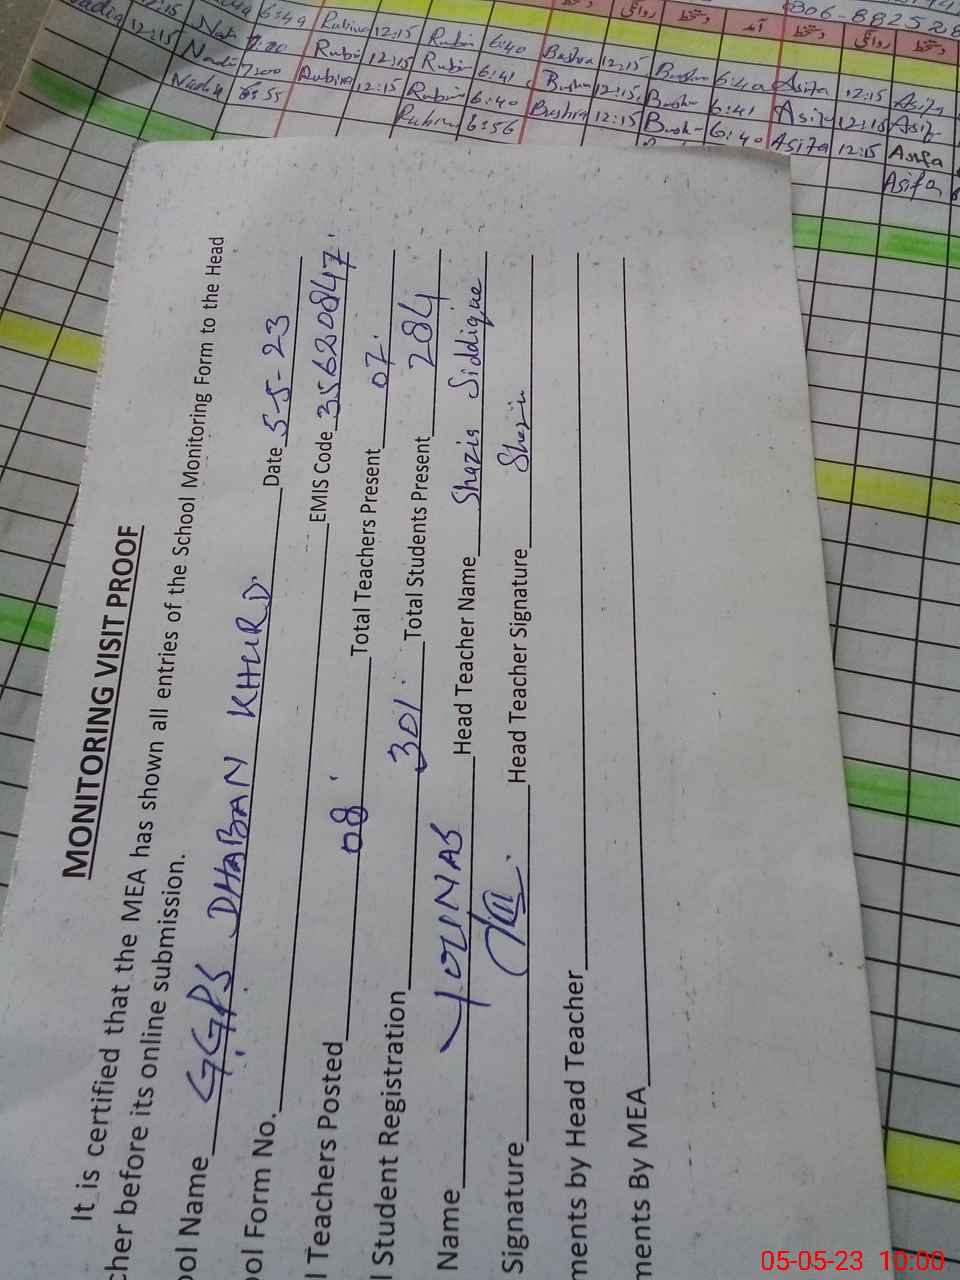 MONITORING VISIT PROOF
It is certified that the MEA has shown all entries of the School Monitoring Form to the Head
cher before its online submission.
ool Name GGPS DHABAN KHURD. Date 5-5-23
ool Form No. EMIS Code 35620847
l Teachers Posted 08 Total Teachers Present 07
l Student Registration 301 Total Students Present 284
Name YOUNAS Head Teacher Name Shazia Siddique
Signature Head Teacher Signature Shazia
ments by Head Teacher
ments By MEA
12:15 6:49 Rubina 12:15 Rubi 6:40 Bushra 12:15 Bushra 6:40 Asifa 12:15 Asifa
12:15 Nadi 7:20 Rubi 12:15 Rubi 6:41 Bushra 12:15 Bush 6:41 Asif 12:15 Asif
Nadi 7:00 Rubina 12:15 Rubin 6:40 Bushra 12:15 Bush 6:40 Asifa 12:15 Asifa
Nadia 6:55 Rubina 6:56 Asifa
05-05-23 10:00